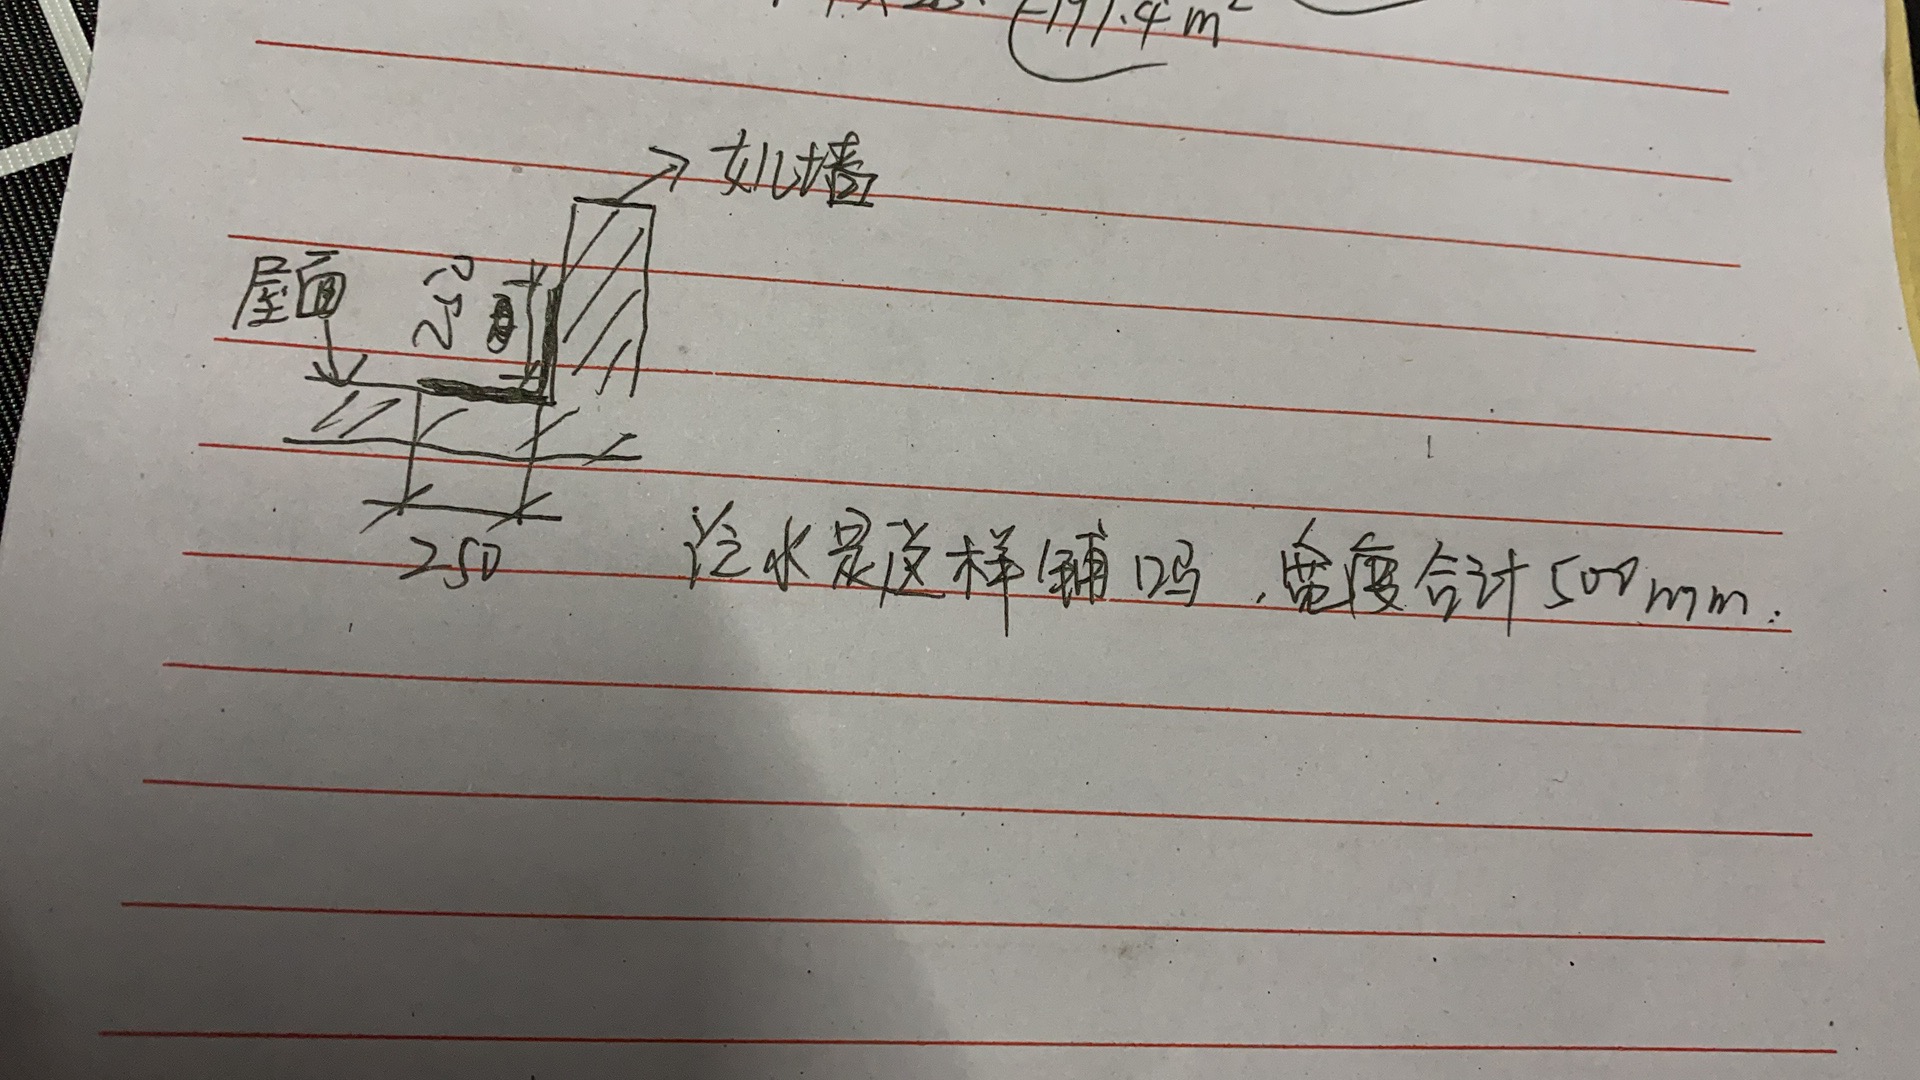 191.4m²
女儿墙
屋面
250
250
泛水是这样铺吗,宽度合计500mm.